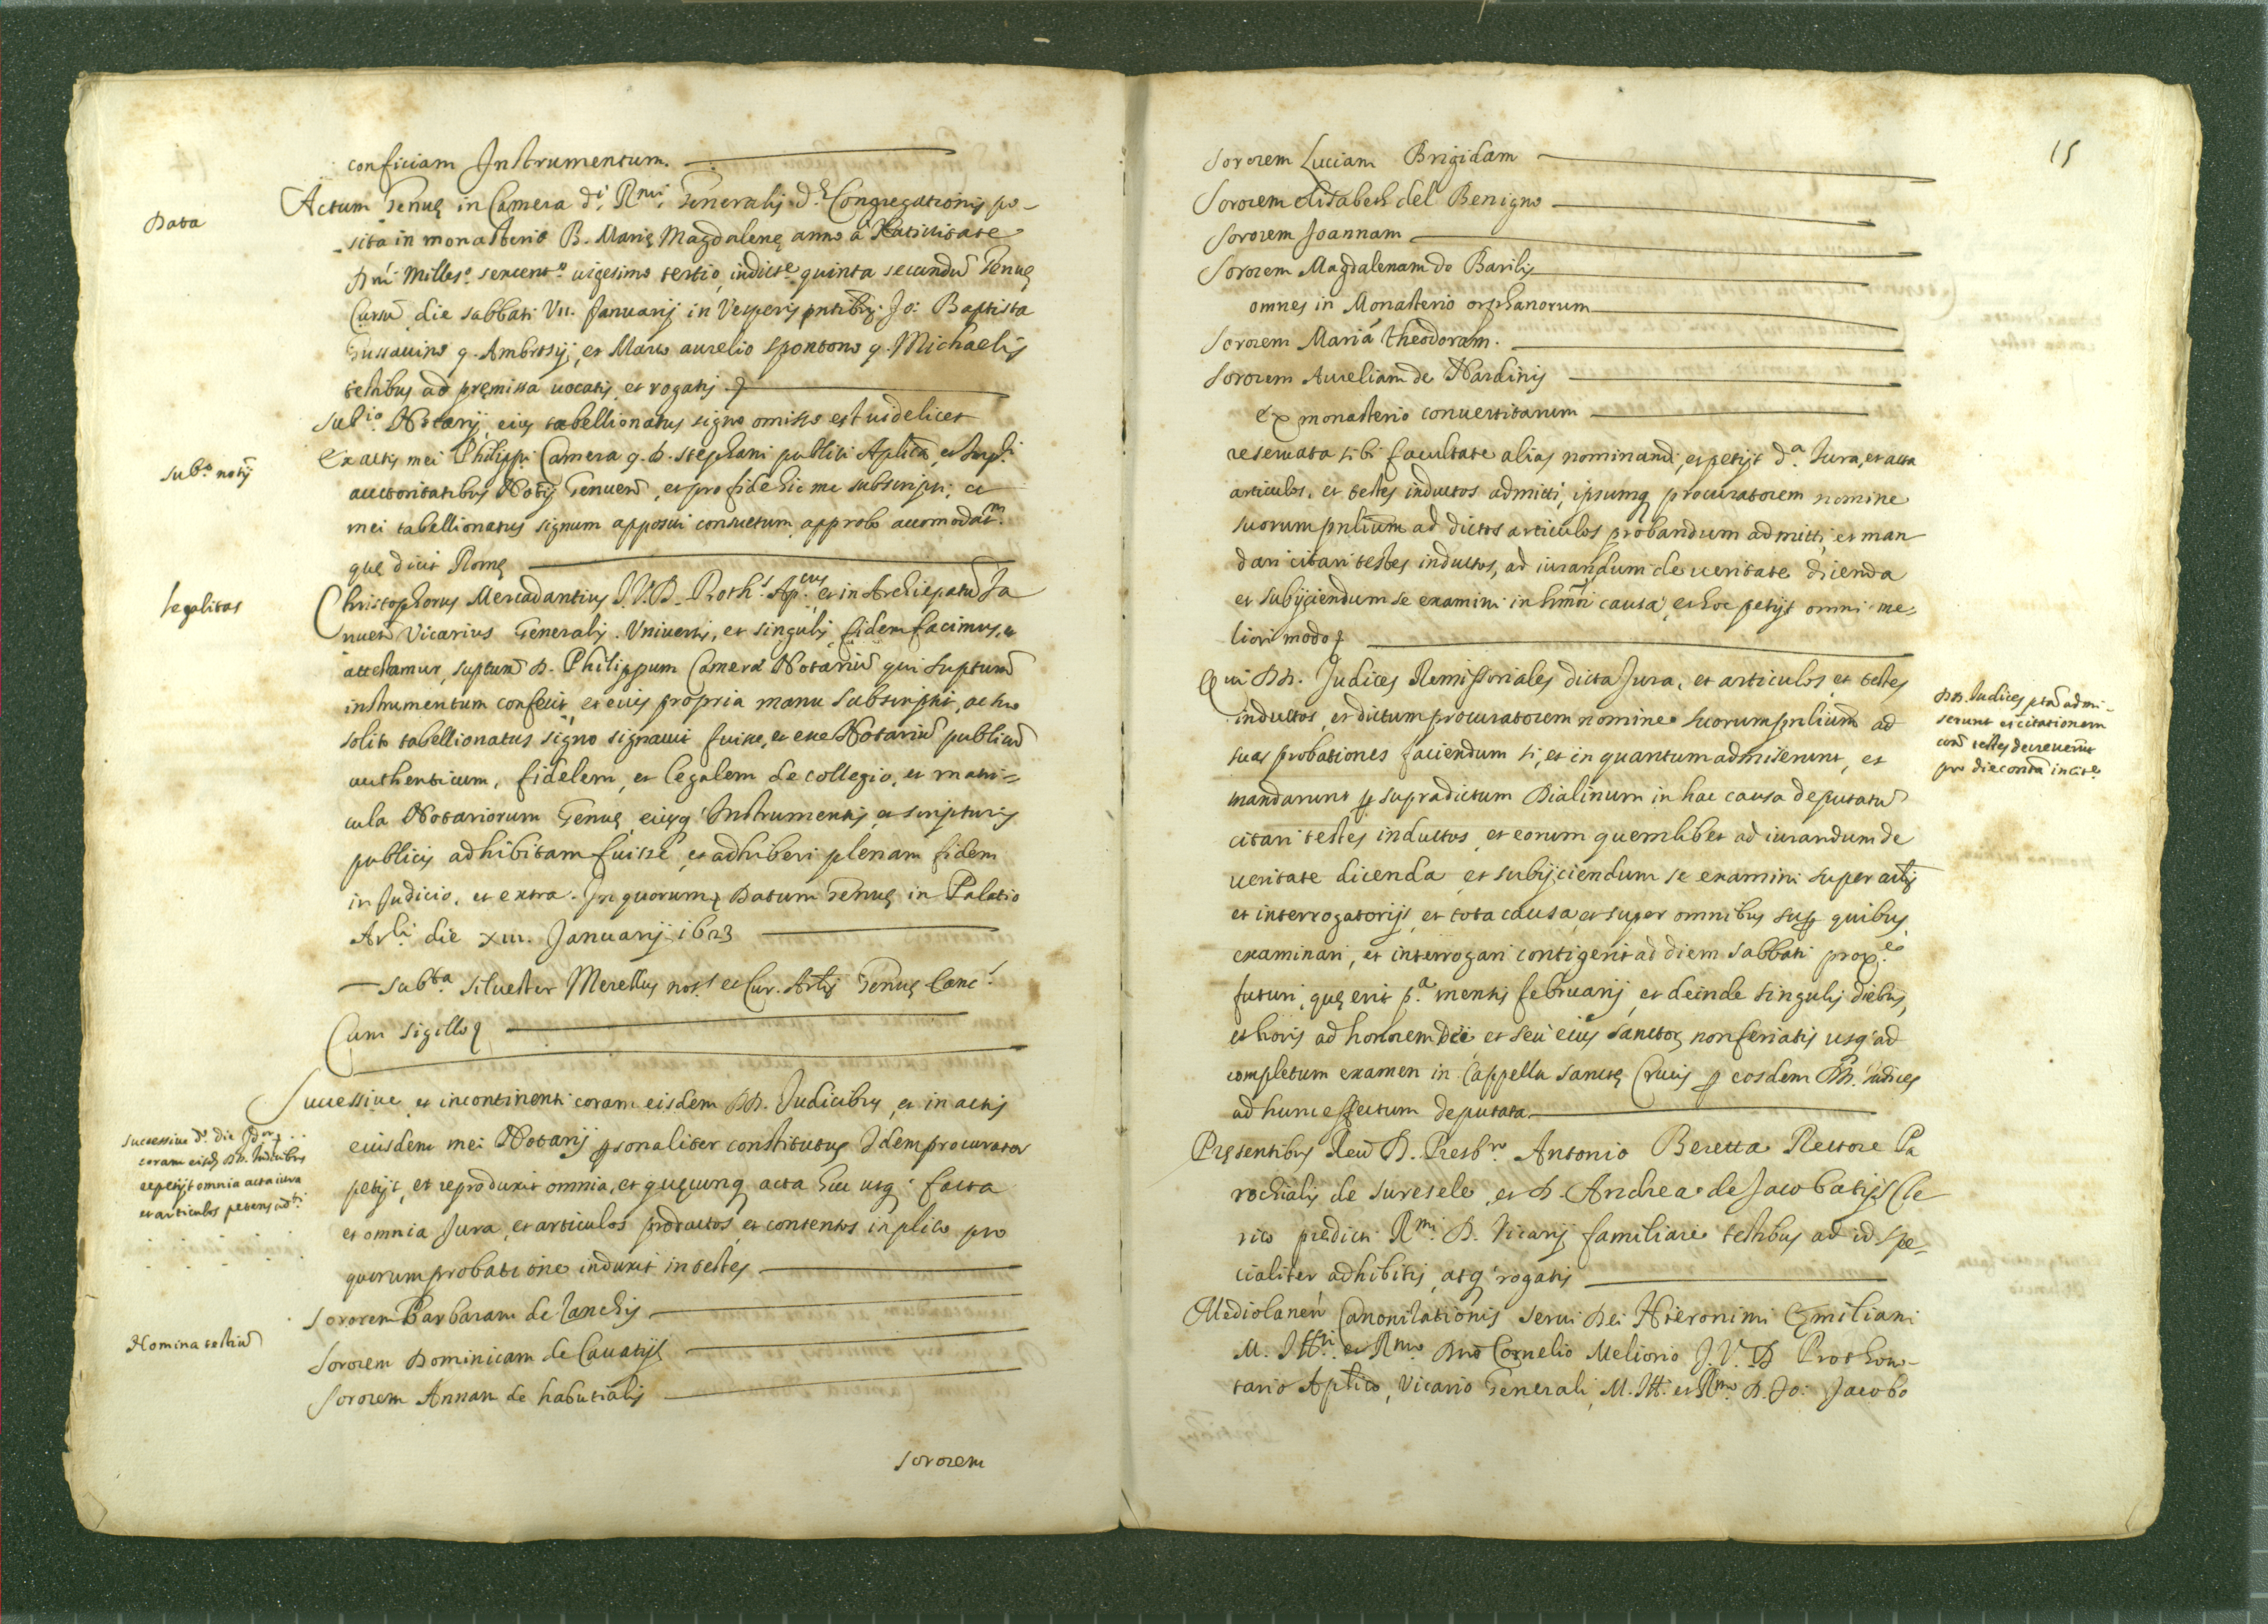 conficiam Instrumentum.
Data
Actum Genuę in Camera d.i R.mi Generalis d.ę Congregationis po-
sita in monasterio B. Marię Magdalenę anno à Natiuitate
Dñi Milles.o sexcent.o uigesimo tertio, indict.e quinta secundũ Genuę
Cursũ die sabbati VII. Januarij in Vesperis pñtibus Jo: Baptista
q. Ambrosij, et Marco aurelio spontono q. Michaelis
testibus ad pręmissa uocatis, et rogatis
Notarij, eius tabellionatus signo omisso est uidelicet
sub.o notij
Ex actis mei Philippi Camera q. D. stephani publici Aplica, et
auctoritatibus Notij Genueñ, et pro fide hic me subscripsi, ac
mei tabellionatus signum apposui consuetum, approbo accomodat.m
que dicit Romę
legalitas
Christophorus Mercadantius J.V.D. Proth.s Ap.cus et in Archiepatu Ja
nueñ Vicarius Generalis. Vniuersis, et singulis fidem facimus, et
attestamur, suptum D. Philippum Camera Notariũ qui suptum
instrumentum confecit, et eius propria manu subscripsit, ac suo
solito tabellionatus signo signauit fuisse, et esse Notariũ publicũ
authenticum, fidelem, et legalem de collegio, et matri=
cula Notariorum Genuę, eiusq Instrumentis, et scripturis
publicis adhibitam fuisse, et adhiberi plenam fidem
in Judicio, et extra. In quorum Datum Genuę in Palatio
Arli die XIII. Januarij 1623
subta siluester Merellus not.s et Cur. Arlis Genuę Canc.s
Cum sigillo
Successiue, et incontinenti coram eisdem DD. Judicibus, et in actis
Successiue d.o die
coram eisd. DD. Judicibus
repetijt omnia acta iura
et articulos petens
eiusdem mei Notarij psonaliter constitutus Idem procurator
petijt, et reproduxit omnia, et quęcunq acta huc usq facta
et omnia Jura, et articulos productos, et contentos in plico pro
quorum probatione induxit in testes
Sororem Barbaram de Zanchis
Nomina testiũ
Sororem Dominicam de Cauatijs
Sororem Annam de habutialis
sororem
15
Sororem Luciam Brigidam
Sororem elisabeth del Benigno
Sororem Joannam
Sororem Magdalenam de Barilis
omnes in Monasterio orphanorum
Sororem Mariã theodoram.
Sororem Aureliam de Nardinis
Ex monasterio conuertitarum
reseruata sibi facultate alias nominandi, et petijt d.a Jura, et acta
articulos, et testes inductos admitti, ipsumq procuratorem nomine
suorum pnlium ad dictos articulos probandum admitti, et man
dari citari testes inductos, ad iurandum de ueritate dicenda
et subijciendum se examini in hmõi causa, et hoc petijt omni me-
liori modo
Qui DD. Judices Remissoriales dicta Jura, et articulos, et testes
DD. Judices ptã admi-
serunt et citationem
testes decreuerunt
pro die
inductos, et dictum procuratorem nomine suorum pnlium ad
suas probationes faciendum si, et in quantum admiserunt, et
mandarunt p supradictum Dialinum in hac causa deputatũ
citari testes inductos, et eorum quemlibet ad iurandum de
ueritate dicenda et subijciendum se examini super artis
et interrogatorijs, et tota causa, et super omnibus sup quibus
examinari, et interrogari contigerit ad diem sabbati prox.e
futuri, quę erit p.a mensis februarij, et deinde singulis diebus,
et horis ad honorem Dei, et seu eius sanctor, non feriatis usq ad
completum examen in Cappella sanctę Crucis p eosdem DD. Judices
ad hunc effectum deputata
Pręsentibus Reũ D. Presb.ro Antonio Beretta Rectore Pa
rochialis de suresele, et D. Andrea de Jacobatijs Cle
rico predicti R.mi D. Vicarij familiare testibus ad id spe-
cialiter adhibitis, atq rogatis
Mediolaneñ Canonizationis serui Dei Hieronimi Emiliani
M. Ill.ri et R.mo Dno Cornelio Meliorio J.V.D Prothono-
tario Aplico, Vicario Generali, M. Ill. et R.mo D. Jo: Jacobo